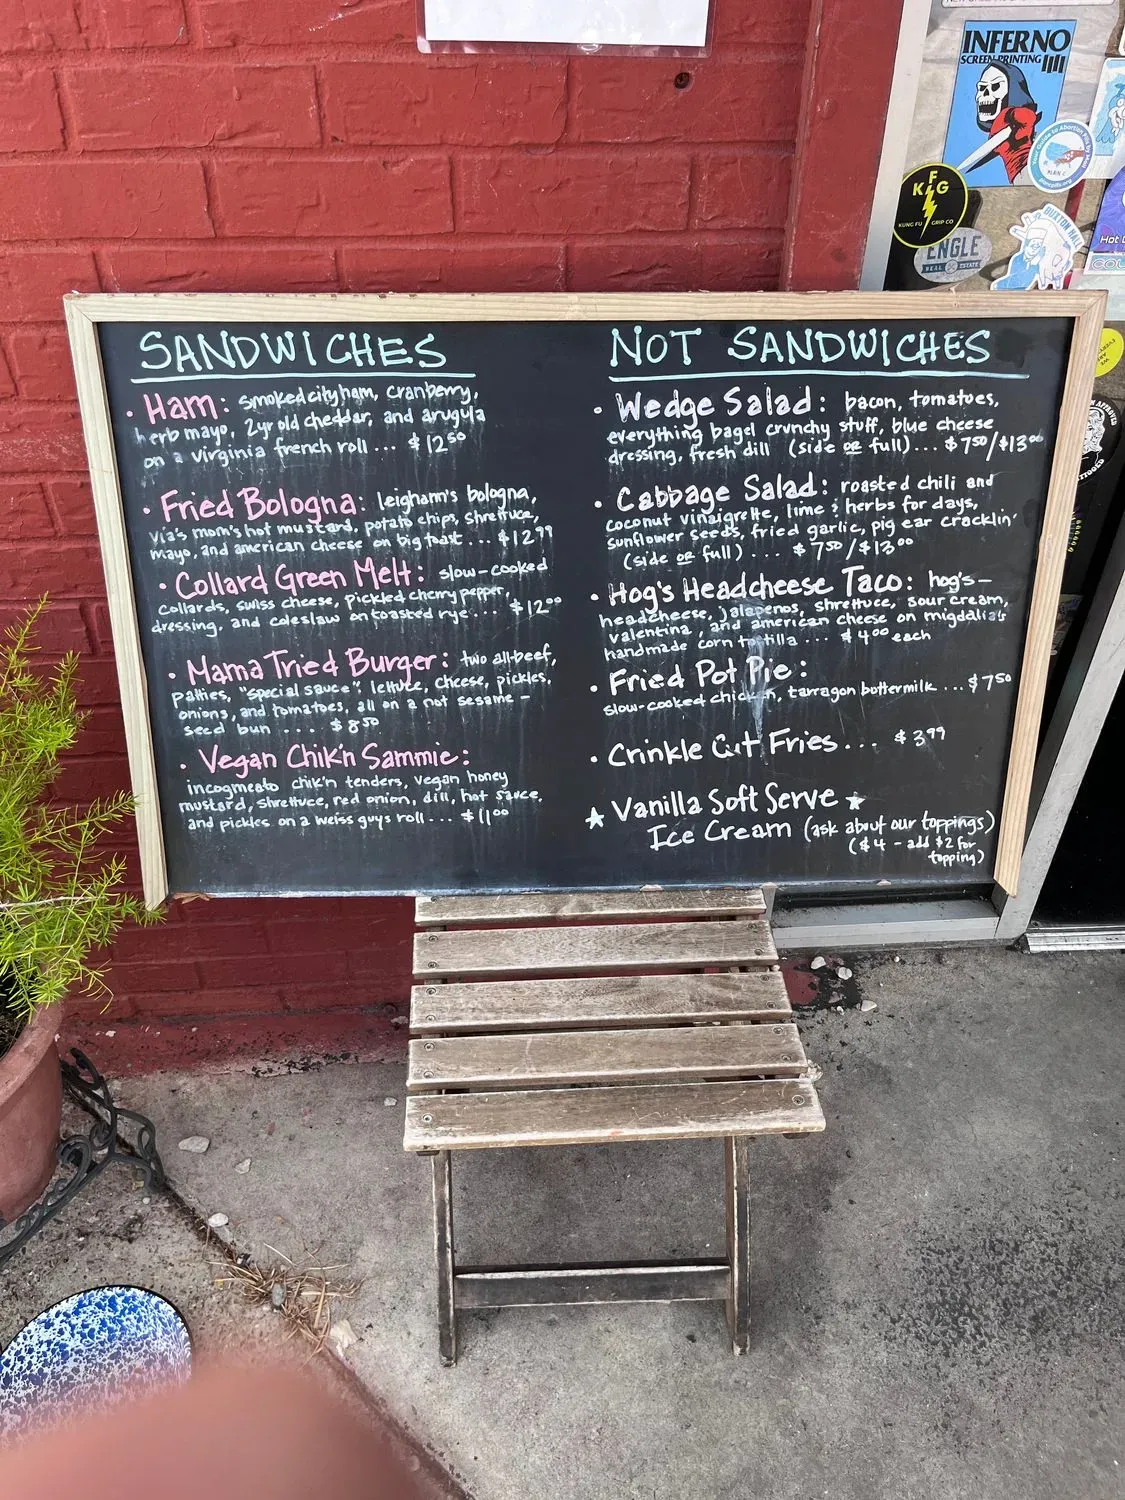 SANDWICHES
• Ham: smoked city ham, cranberry,
herb mayo, 2yr old cheddar, and arugula
on a virginia french roll ... $12⁵⁰
• Fried Bologna: leighann's bologna,
via's mom's hot mustard, potato chips, shrettuce,
mayo, and american cheese on big toast ... $12⁹⁹
• Collard Green Melt: slow-cooked
collards, swiss cheese, pickled cherry pepper,
dressing, and coleslaw on toasted rye ... $12⁰⁰
• Mama Tried Burger: two all-beef,
patties, "special sauce", lettuce, cheese, pickles,
onions, and tomatoes, all on a not sesame-
seed bun ... $8⁵⁰
• Vegan Chik'n Sammie:
incogmeato chik'n tenders, vegan honey
mustard, shrettuce, red onion, dill, hot sauce,
and pickles on a weiss guys roll ... $11⁰⁰
NOT SANDWICHES
• Wedge Salad: bacon, tomatoes,
everything bagel crunchy stuff, blue cheese
dressing, fresh dill (side or full) ... $7⁵⁰/$13⁰⁰
• Cabbage Salad: roasted chili and
coconut vinaigrette, lime & herbs for days,
sunflower seeds, fried garlic, pig ear cracklin'
(side or full) ... $7⁵⁰/$13⁰⁰
• Hog's Headcheese Taco: hog's-
headcheese, jalapenos, shrettuce, sour cream,
valentina, and american cheese on migdalia's
handmade corn tortilla ... $4⁰⁰ each
• Fried Pot Pie:
slow-cooked chicken, tarragon buttermilk ... $7⁵⁰
• Crinkle Cut Fries ... $3⁹⁹
★ Vanilla Soft Serve ★
Ice Cream (ask about our toppings)
($4 - add $2 for
topping)
INFERNO
SCREEN PRINTING
KFG
KUNG FU GRIP CO
ENGLE
REAL ESTATE
BUXTON HALL
PLAN C
plancpills.org